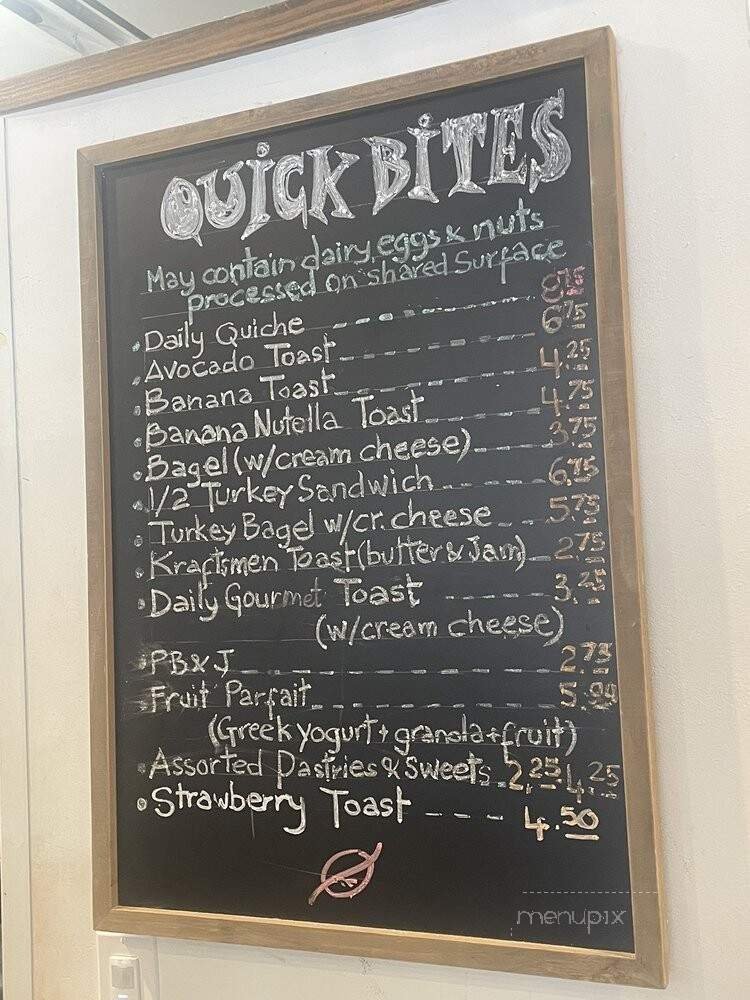 QUiCK BiTES
May contain dairy, eggs & nuts
processed on shared Surface
Daily Quiche 8.75
Avocado Toast 6.75
Banana Toast 4.25
Banana Nutella Toast 4.75
Bagel (w/cream cheese) 3.75
1/2 Turkey Sandwich 6.75
Turkey Bagel w/cr. cheese 5.75
Kraftsmen Toast (butter & Jam) 2.75
Daily Gourmet Toast 3.25
(w/cream cheese)
PB & J 2.75
Fruit Parfait 5.00
(Greek yogurt + granola + fruit)
Assorted Pastries & Sweets 2.25 4.25
Strawberry Toast 4.50
menupix